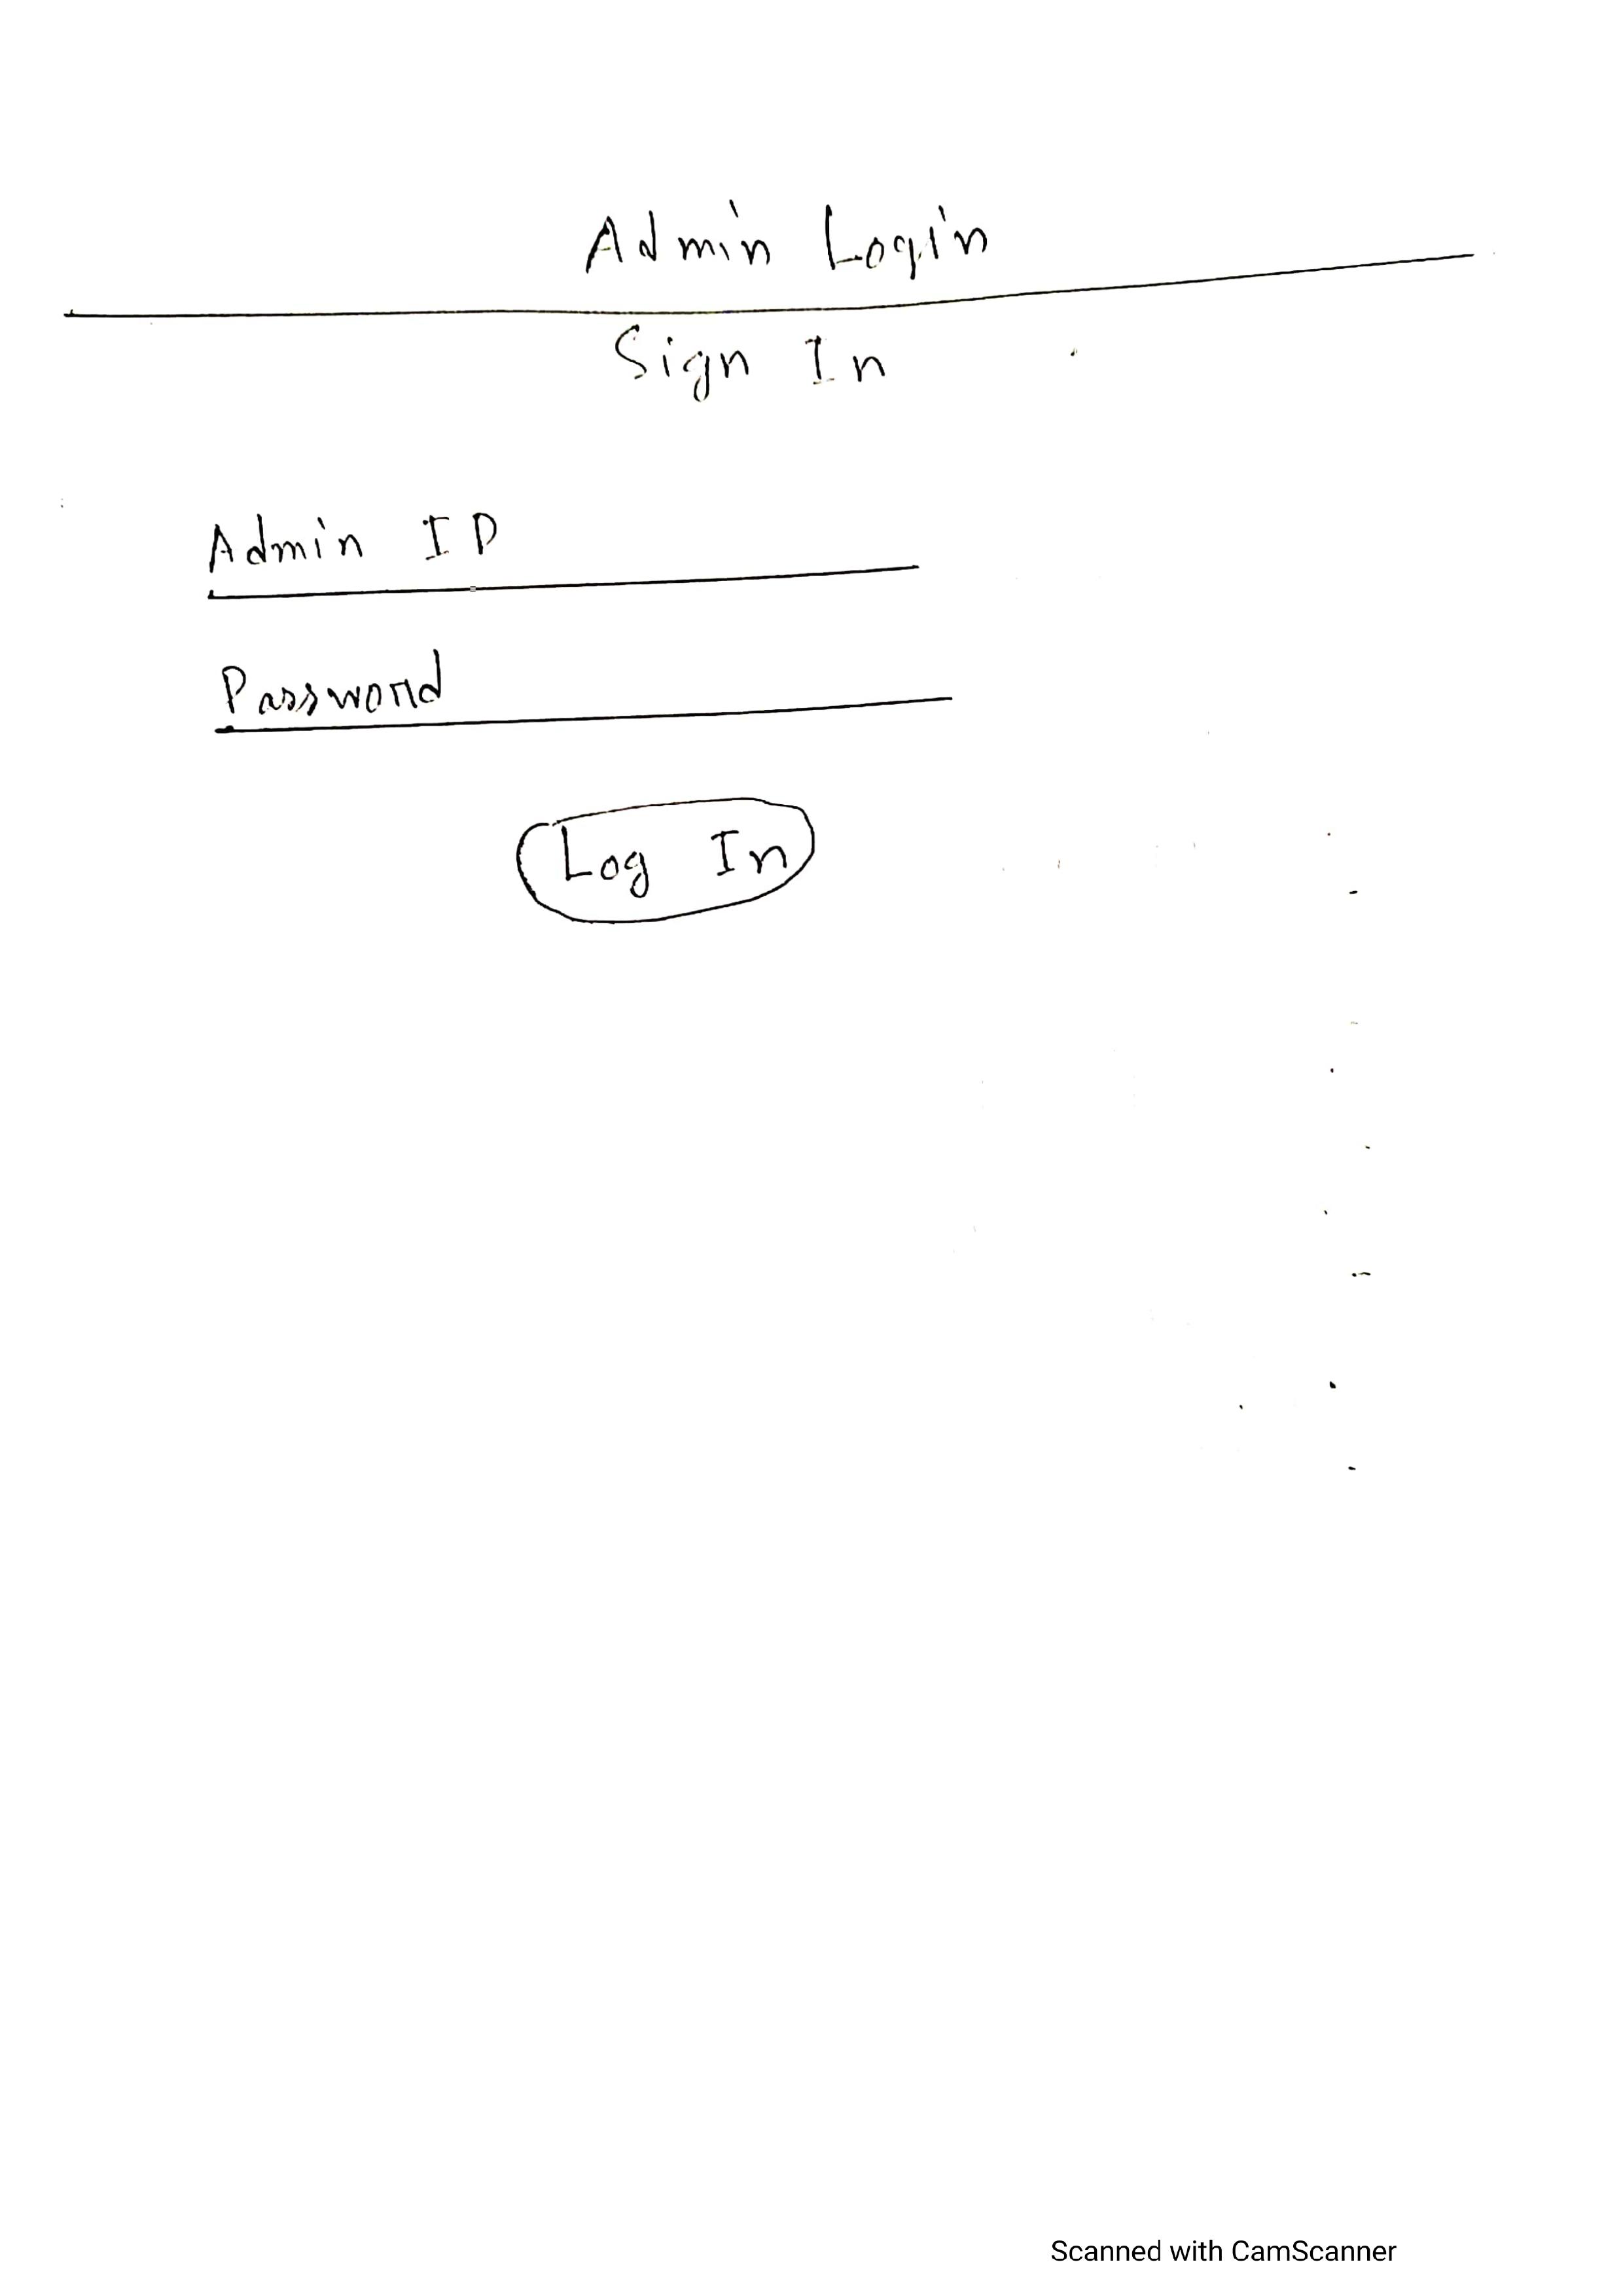 Admin Login
Sign In
Admin ID
Password
Log In
Scanned with CamScanner